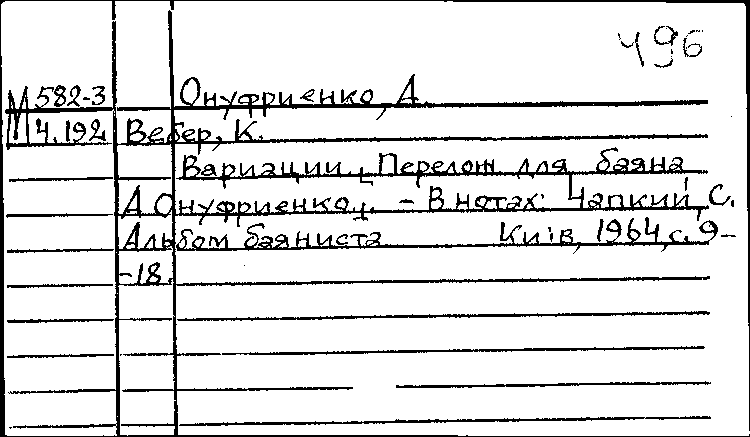 496
М 582-3 Онуфриенко, А.
4.192 Вебер, К.
Вариации. [Перелож для баяна
А Онуфриенко]. - В нотах: Чапкий, С.
Альбом баяниста Київ, 1964, с. 9-
-18.